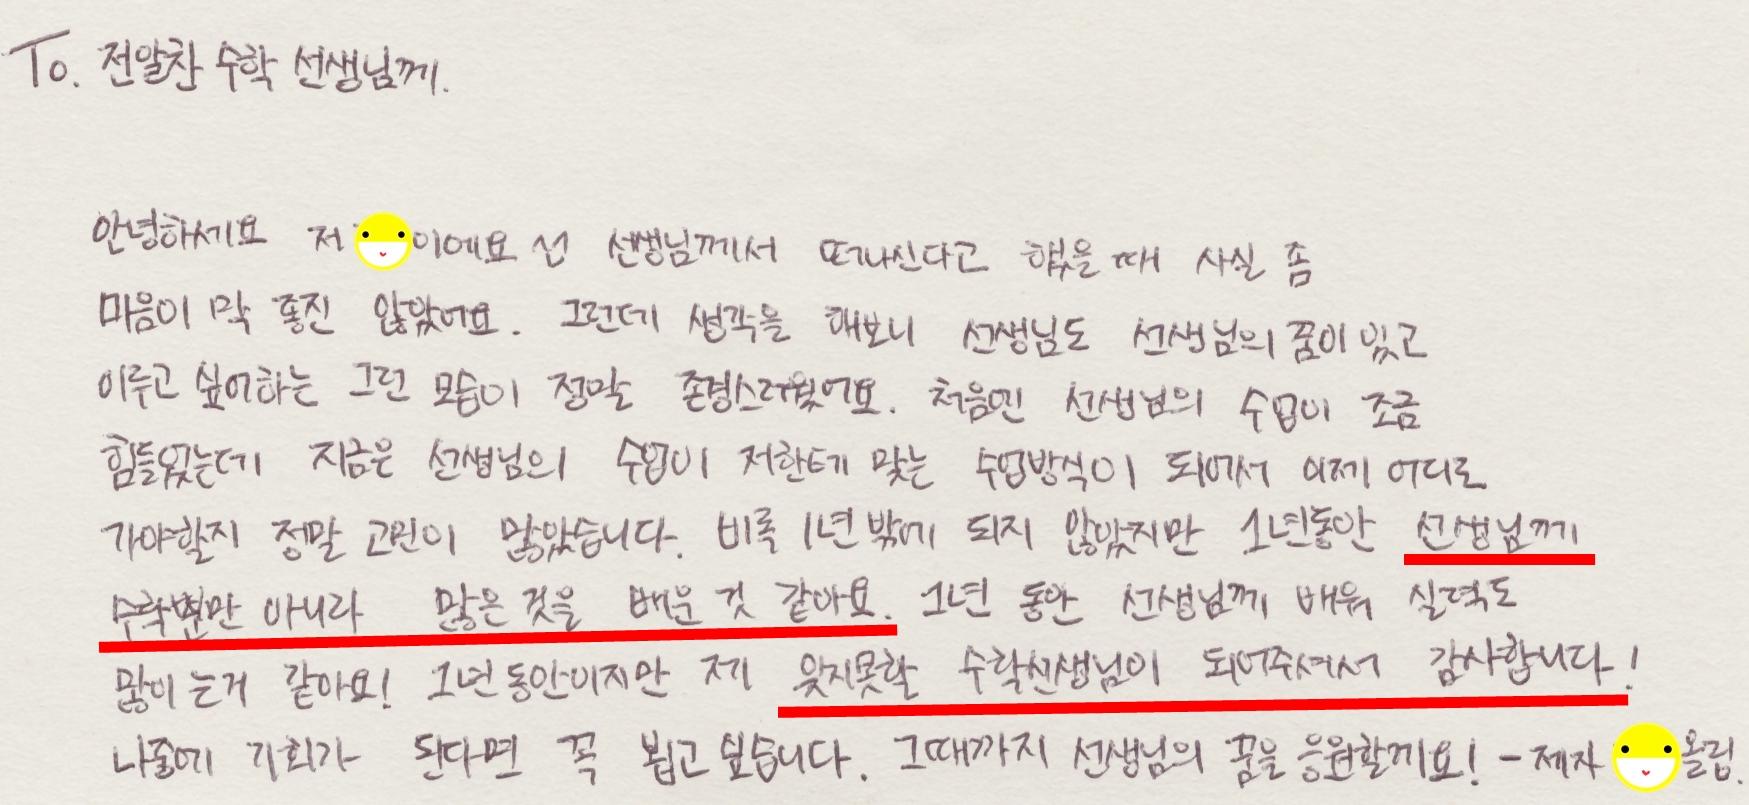 To. 전알찬 수학 선생님께.
안녕하세요 저 이에요 선 선생님께서 떠나신다고 했을 때 사실 좀
마음이 막 좋진 않았어요. 그런데 생각을 해보니 선생님도 선생님의 꿈이 있고
이루고 싶어하는 그런 모습이 정말 존경스러웠어요. 처음엔 선생님의 수업이 조금
힘들었는데 지금은 선생님의 수업이 저한테 맞는 수업방식이 되어서 이제 어디로
가야할지 정말 고민이 많았습니다. 비록 1년 밖에 되지 않았지만 1년동안 선생님께
수학뿐만 아니라 많은 것을 배운 것 같아요. 1년 동안 선생님께 배워 실력도
많이 는거 같아요! 1년동안이지만 제 잊지못할 수학선생님이 되어주셔서 감사합니다!
나중에 기회가 된다면 꼭 뵙고 싶습니다. 그때까지 선생님의 꿈을 응원할께요! - 제자 올림.